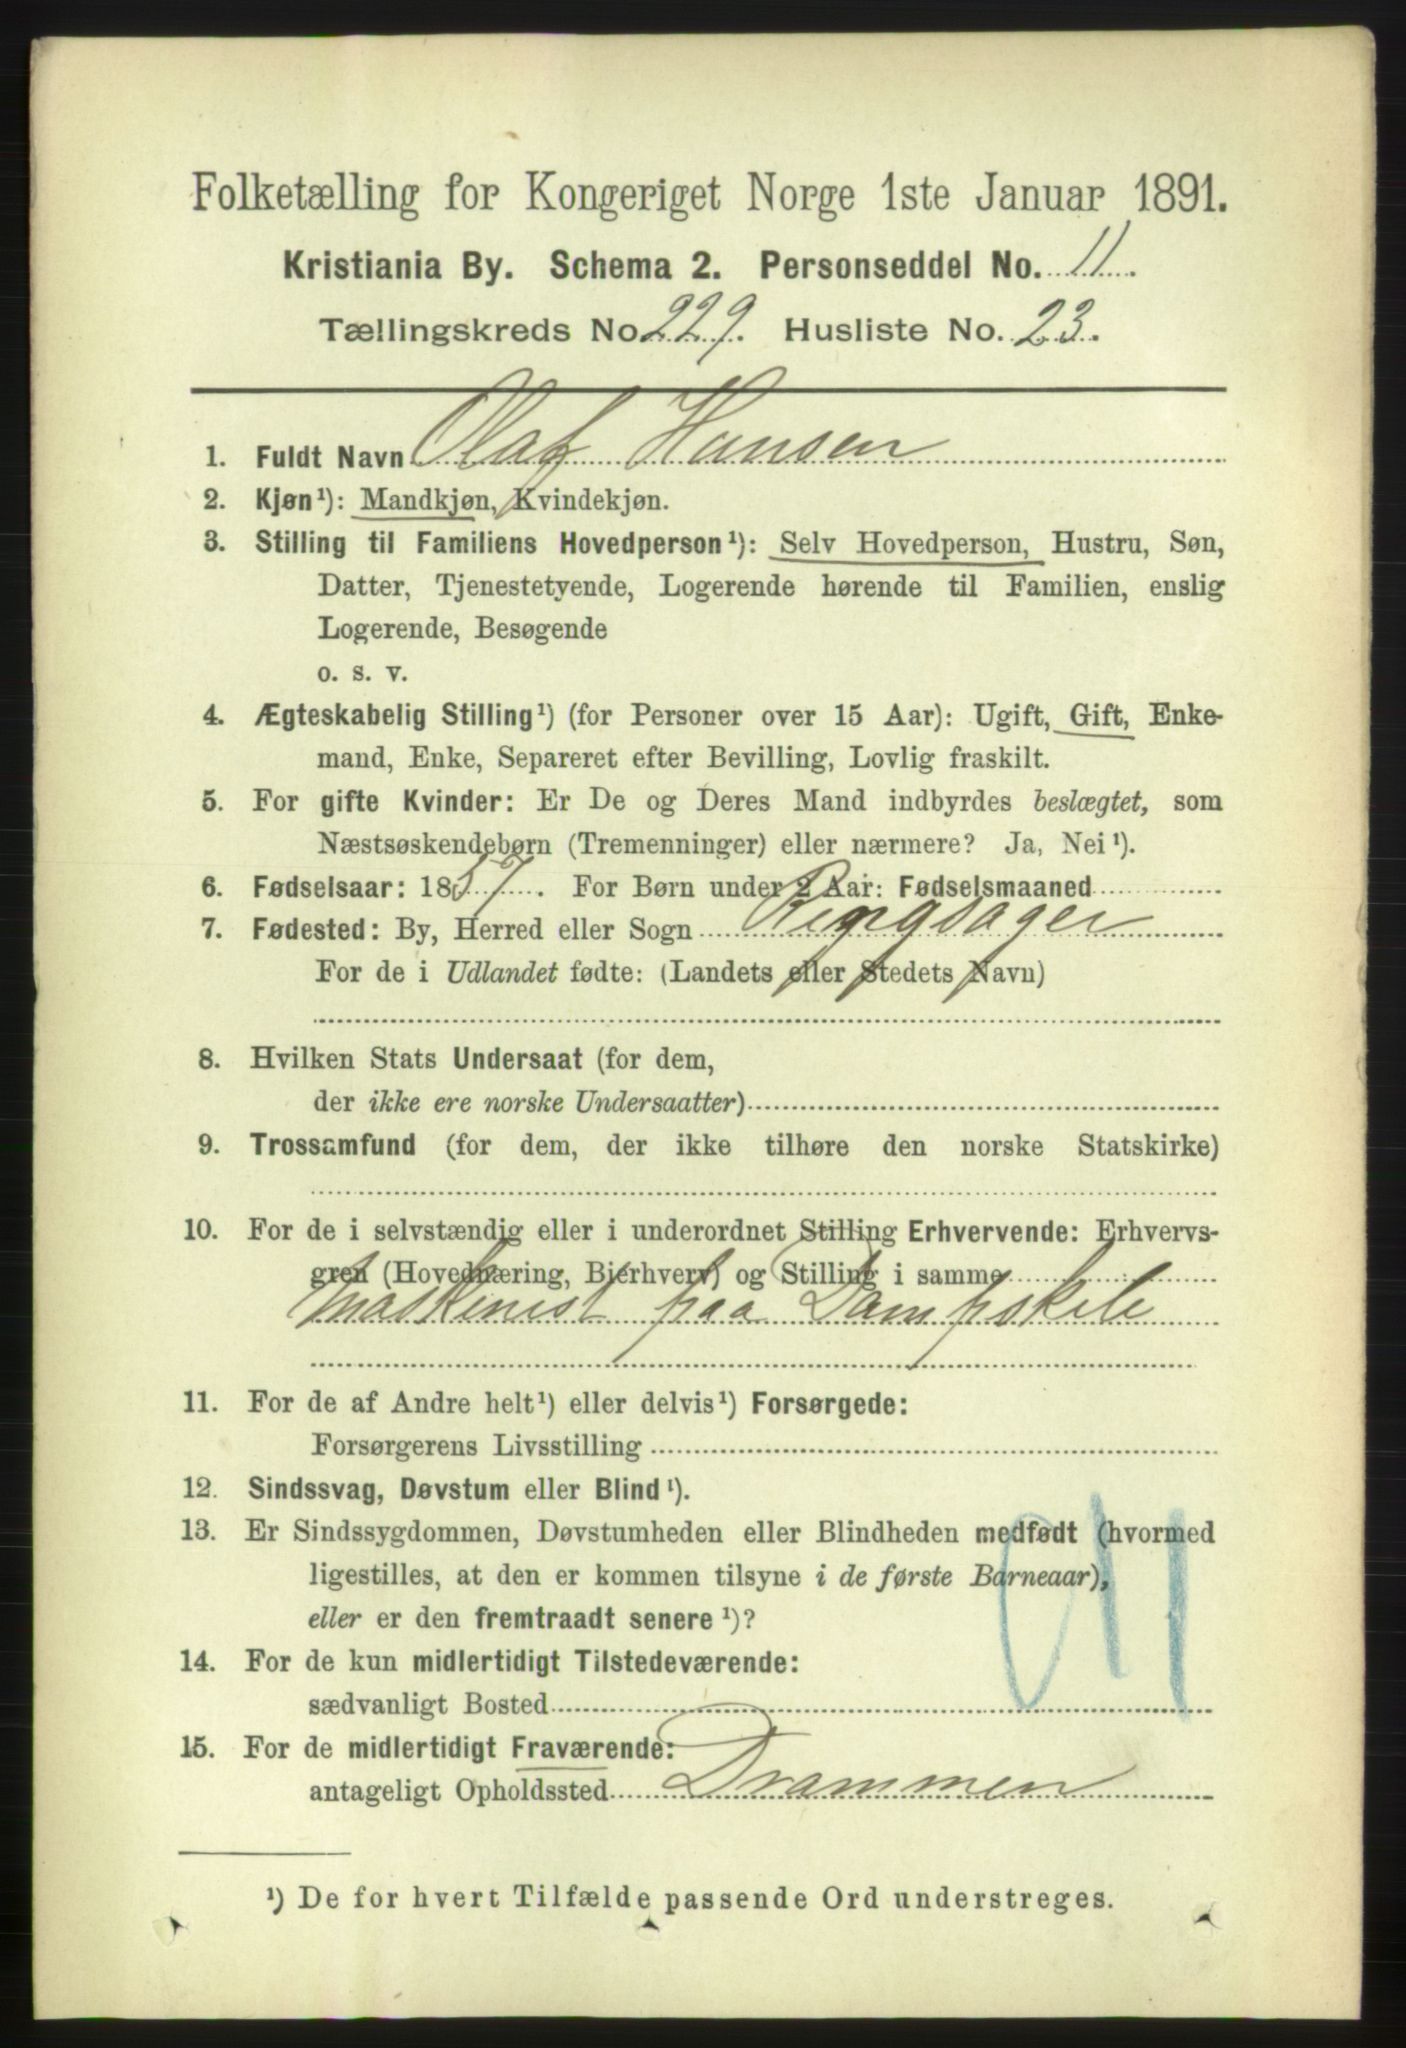 Folketælling for Kongeriget Norge 1ste Januar 1891.
Kristiania By. Schema 2. Personseddel No. 11.
Tællingskreds No. 229. Husliste No. 23.
1. Fuldt Navn Olaf Hansen
2. Kjøn¹): Mandkjøn, Kvindekjøn.
3. Stilling til Familiens Hovedperson¹): Selv Hovedperson, Hustru, Søn,
Datter, Tjenestetyende, Logerende hørende til Familien, enslig
Logerende, Besøgende
o. s. v.
4. Ægteskabelig Stilling¹) (for Personer over 15 Aar): Ugift, Gift, Enke-
mand, Enke, Separeret efter Bevilling, Lovlig fraskilt.
5. For gifte Kvinder: Er De og Deres Mand indbyrdes beslægtet, som
Næstsøskendebørn (Tremenninger) eller nærmere? Ja, Nei¹).
6. Fødselsaar: 1857. For Børn under 2 Aar: Fødselsmaaned
7. Fødested: By, Herred eller Sogn Ringsager
For de i Udlandet fødte: (Landets eller Stedets Navn)
8. Hvilken Stats Undersaat (for dem,
der ikke ere norske Undersaatter)
9. Trossamfund (for dem, der ikke tilhøre den norske Statskirke)
10. For de i selvstændig eller i underordnet Stilling Erhvervende: Erhvervs-
gren (Hovednæring, Bierhverv) og Stilling i samme
Maskenist paa Dampskib
11. For de af Andre helt¹) eller delvis¹) Forsørgede:
Forsørgerens Livsstilling
12. Sindssvag, Døvstum eller Blind¹).
13. Er Sindssygdommen, Døvstumheden eller Blindheden medfødt (hvormed
ligestilles, at den er kommen tilsyne i de første Barneaar),
eller er den fremtraadt senere¹)?
14. For de kun midlertidigt Tilstedeværende:
sædvanligt Bosted
15. For de midlertidigt Fraværende:
antageligt Opholdssted Drammen
¹) De for hvert Tilfælde passende Ord understreges.